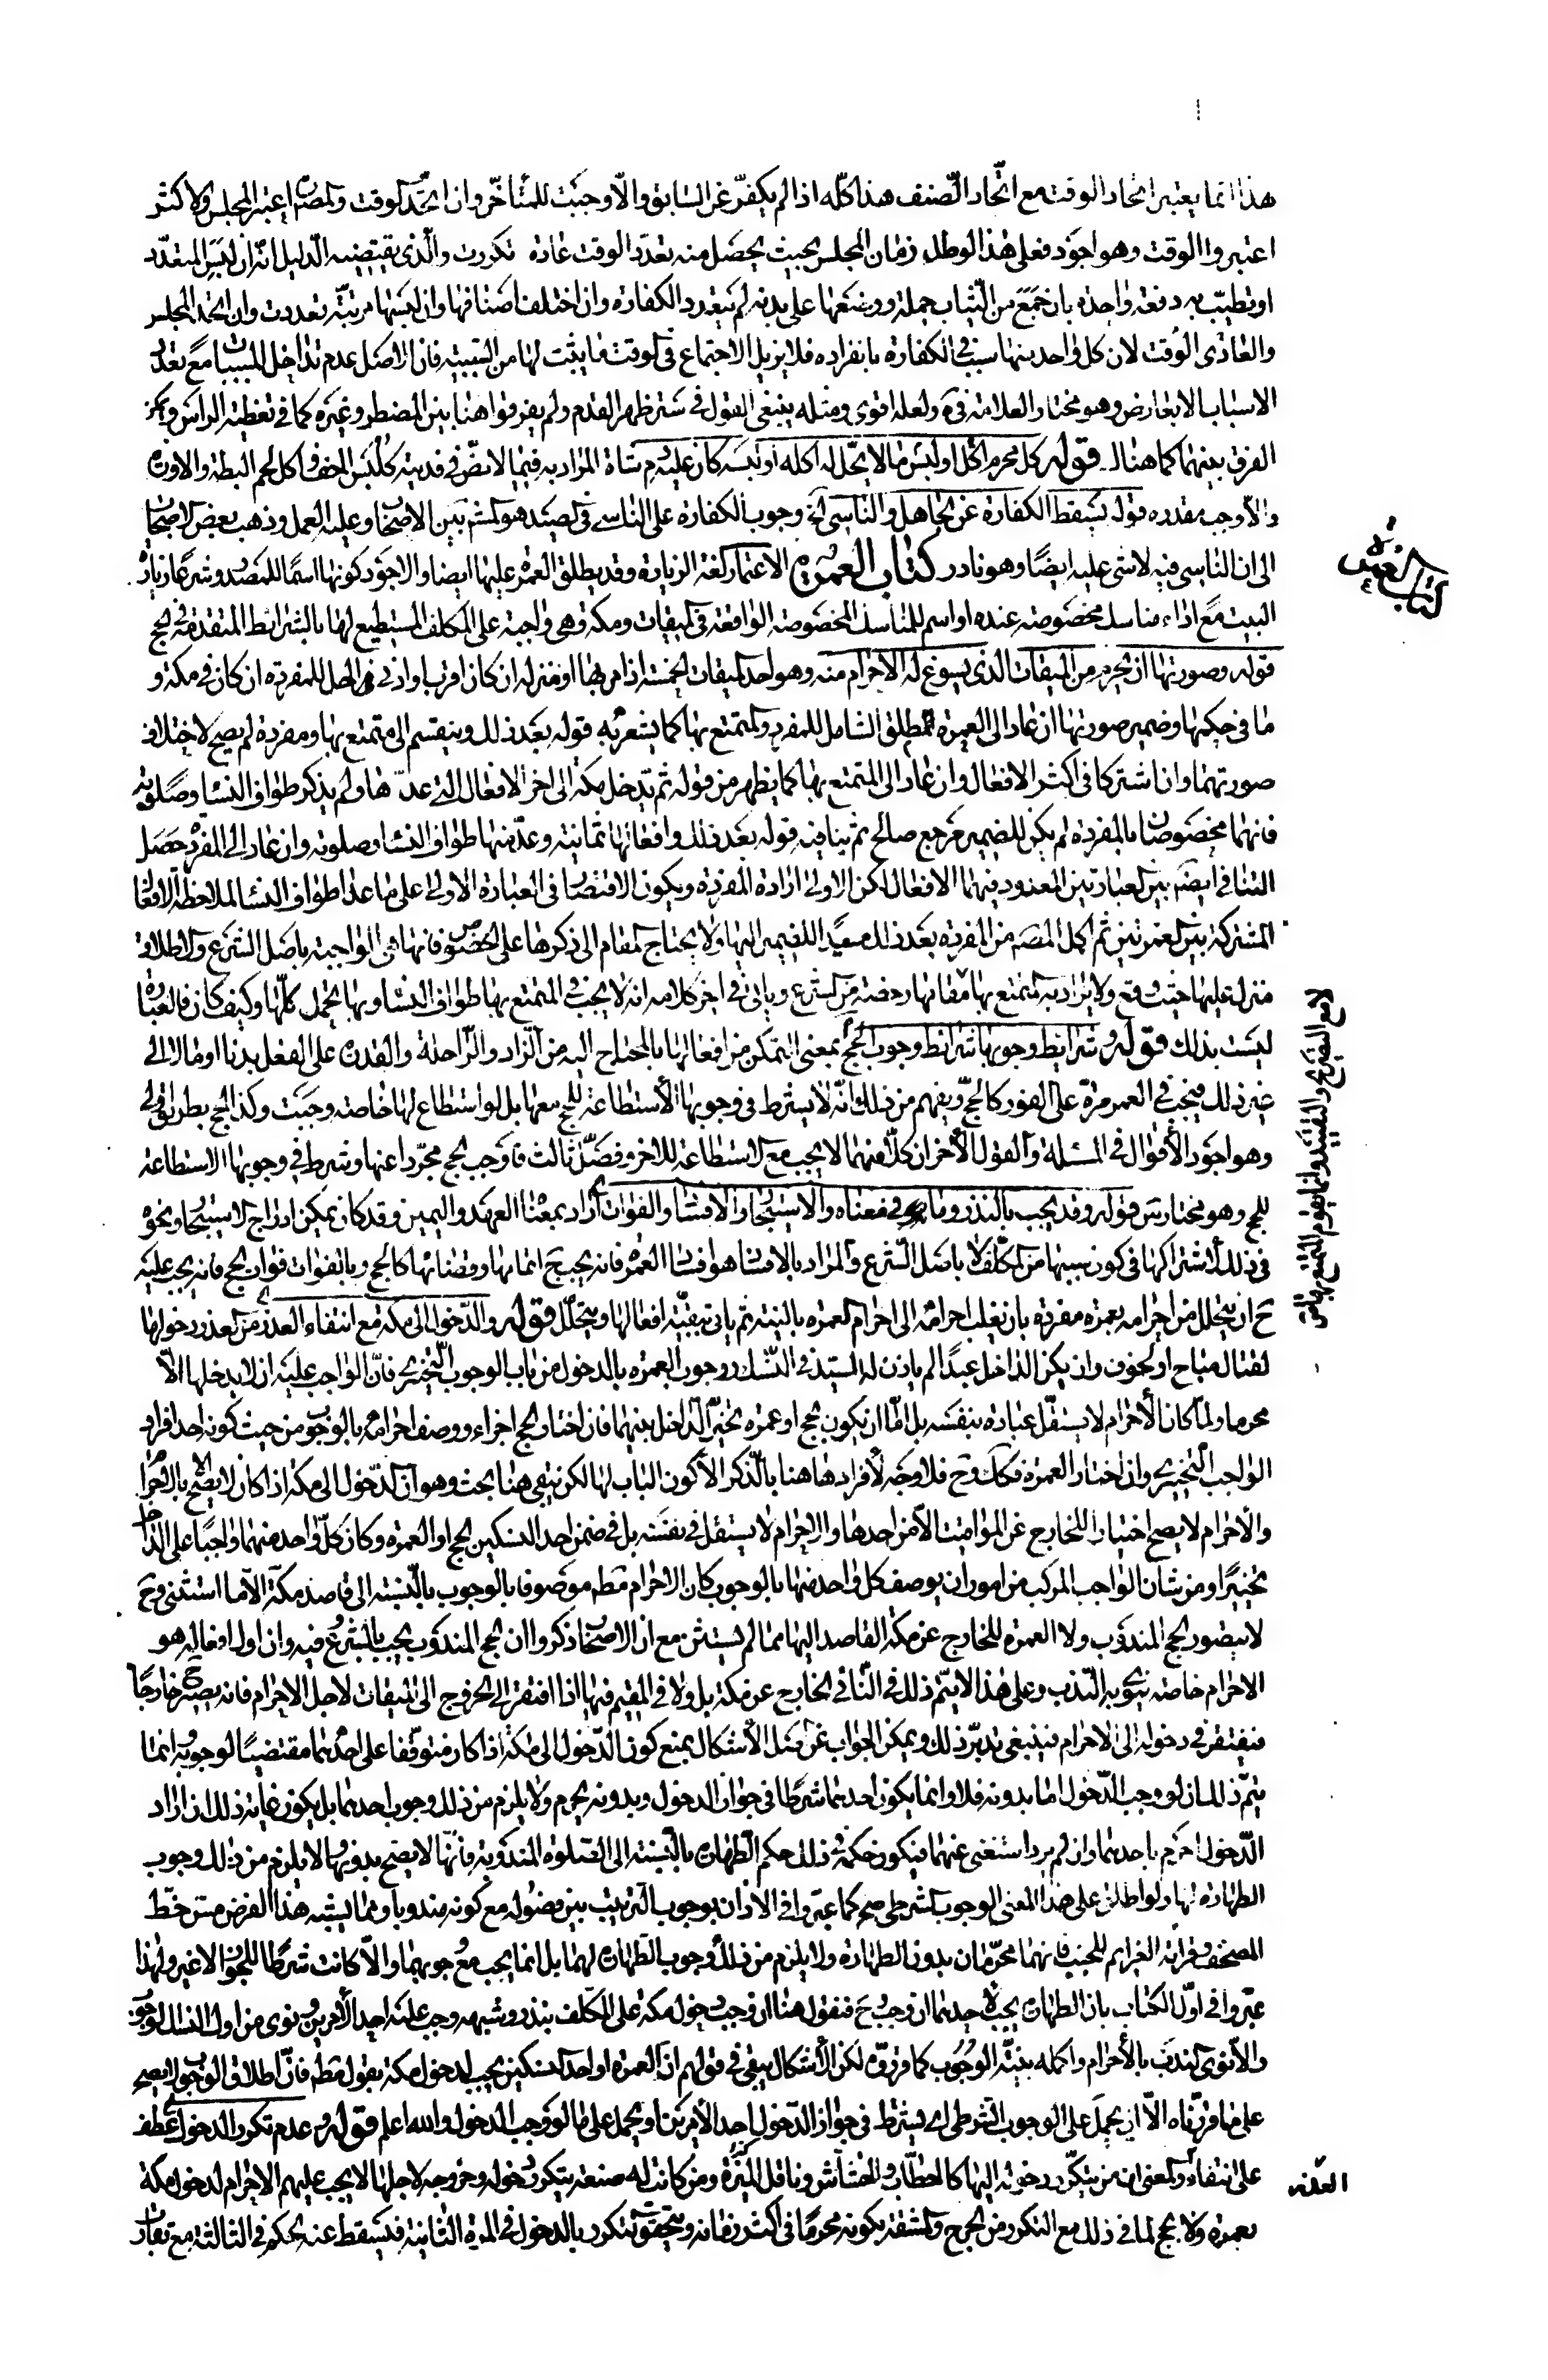 هذا انما يعتبر اتحاد الوقت مع اتّحاد الصّنف هذا كلّه اذا لم يكفّر عن السّابق والّا وجبت للمتأخّر وان اتحد الوقت والمص اعتبر المجلس والاكثر
اعتبروا الوقت وهو اجود فعلى هذا لو طال زمان المجلس بحيث يحصل منه تعدّد الوقت عادة تكررت والّذى يقتضيه الدّليل انّه ان لبس المتعدّد
او تطيّب به دفعة واحدة بان جمع من الثياب جملة ووضعها على بدنه لم يتعدد الكفارة وان اختلف اصنافها وان لبسها مرتبّة تعددت وان اتحد المجلس
والعادى الوقت لان كل واحد منها سبب فى الكفارة بانفراده فلا يزيل الاجتماع فى الوقت ما يثبت لها من السّببيه فان الاصل عدم تداخل المسببات مع تعدد
الاسباب الا بعارض وهو مختار العلامة فى ولعله اقوى ومثله ينبغى القول فى ستر ظهر القدم ولم يفرقوا هنا بين المضطر وغيره كما فى تغطية الراس ويمكن
الفرق بينهما كما هناك قوله كل محرم اكل او لبس ما لا يحّل له اكله او لبسه كان عليه دم شاة المراد به فيما لا نصّ فى فديته كلبس الخف واكل لحم البطة والاوزة
والا وجب مقدره قوله تسقط الكفارة عن الجاهل والناسى الخ وجوب الكفارة على الناسى فى الصيد هو المشهور بين الاصحاب وعليه العمل وذهب بعض الاصحاب
الى ان الناسى فيه لا شى عليه ايضًا وهو نادر كتاب العمرة الاعتمار لغة الزيارة وقد يطلق العمرة عليها ايضا والاجود كونها اسمًا للمصدر وشرعا زيارة
البيت مع اداء مناسك مخصوصة عنده او اسم للمناسك المخصوصة الواقعة فى الميقات ومكة وهى واجبة على المكلف المستطيع لها بالشرائط المتقدمة فى الحج
قوله وصورتها ان يحرم من الميقات الذى يسوغ له الاحرام منه وهو احد الميقات الخمسة اذا مر بها او منزله ان كان اقرب او ادنى الحل للمفردة ان كان فى مكة و
ما فى حكمها وضمير صورتها ان عاد الى العمرة المطلق الشامل للمفرد والمتمتع بها كما يشعر به قوله بعد ذلك وينقسم الى متمتع بها ومفردة لم يصح لاختلاف
صورتهما وان اشتركا فى اكثر الافعال وان عاد الى المتمتع بها كما يظهر من قوله ثم يدخل مكة الى اخر الافعال التى عدّها ولم يذكر طواف النساء وصلوته
فانهما مخصوصان بالمفردة لم يكن للضمير مرجع صالح ثم ينافيه قوله بعد ذلك وافعالها ثمانية وعدّ منها طواف النساء وصلوته وان عاد الى المفردة حصل
التنافى ايضا بين العبارتين المعدود فيهما الافعال لكن الاولى ارادة المفردة ويكون الاقتصار فى العبارة الاولى على ما عدا طواف النساء لملاحظة الافعال
المشتركة بين العمرتين ثم اكمل المصَ من المفردة بعد ذلك معيدا للضمير اليها ولا يحتاج المقام الى ذكرها على الخصوص فانها هى الواجبة باصل الشرع والاطلاق
منزل عليها حيث وقع ولا يراد به المتمتع بها مقامها رخصة من الشرع وياتى فى اخر كلامه انه لا يجب فى المتمتع بها طواف النساء وبها يجمل كلّها وكيف كان فالعبارة
ليست بذلك قوله وشرايط وجوبها شرائط وجوب الحجّ بمعنى التمكن من افعالها بالمحتاج اليه من الزّاد والرّاحلة والقدرة على الفعل بدنا او مالا الى
غير ذلك فيجب فى العمر مرّة على الفور كالحجّ ويفهم من ذلك انّه لا يشترط فى وجوبها الأستطاعة للحج معها بل لو استطاع لها خاصة وجبت وكذا الحج بطريق اولى
وهو اجود الأقوال فى المسئلة والقول الأخر ان كلّا منهما لا يجب مع الاستطاعة للاخر وفصّل ثالث فاوجب الحج مجرّدا عنها وشرط فى وجوبها الاستطاعة
للحج وهو مختار س قوله وقد يجب بالنذر وما فى معناه والاستيجار والافساد والفوات اراد بمعناه العهد واليمين وقد كان يمكن ادراج الاستيجار ونحوه
فى ذلك لاشتراكها فى كون سببها من المكلّف لا باصل الشّرع والمراد بالافساد هو افساد العمرة فانه يجب ح اتمامها وقضائها كالحج وبالفوات فوات الحج فانه يجب عليه
ح ان يتحلل من احرامه بعمرة مفردة بان ينقلب احرامه الى احرام العمرة بالنية ثم ياتى ببقيّة افعالها ويتحلّل قوله والدّخول الى مكة مع انتفاء العذر من العذر دخولها
لقتال مباح او لخوف وان يكن الداخل عبدًا لم ياذن له السّيد فى النّسك ووجوب العمرة بالدخول من باب الوجوب التّخييرى فانّ الواجب عليه ان لا يدخلها الّا
محرما ولما كان الأحرام لا يستقلّ عبادة بنفسه بل امّا ان يكون بحج او عمرة تخيّر الدّاخل بينهما فان اختار الحج اجزاء ووصف احرامه بالوجوب من حيث كونه احد افراد
الواجب التّخييرى وان اختار العمرة فكك وح فلا وجه لأفرادها هنا بالذّكر الّا كون الباب لها لكن يبقى هنا بحث وهو انّ الدّخول الى مكة اذا كان لا يصح الا بالاحرام
والأحرام لا يصح اختيارا للخارج عن المواقيت الّا من احدها والاحرام لا يستقل فى نفسه بل فى ضمن احد النسكين الحج او العمرة وكان كلّ واحد منهما واجبًا على الداخل
تخييرًا ومن شان الواجب المركب من امور ان يوصف كل واحد منها بالوجوب كان الاحرام مطم موصوفا بالوجوب بالنّسبة الى قاصد مكّة الّا ما استثنى وح
لا يتصور الحج المندوب ولا العمرة للخارج عن مكة القاصد اليها مما لم يستثن مع ان الاصحاب ذكروا ان الحج المندوب يجب بالشروع فيه وان اول افعاله هو
الاحرام خاصة ينوى به النّدب وعلى هذا لا يتم ذلك فى النّائى الخارج عن مكة بل ولا فى المقيم فيها اذا افتقر الى الخروج الى الميقات لاجل الاحرام فانه يصير ح خارجًا
فيفتقر فى دخوله الى الاحرام فينبغى تدبّر ذلك ويمكن الجواب عن اصل الأشكال بمنع كون الدّخول الى مكة اذا كان متوقّفا على احدهما مقتضيًا لوجوبه انما
يتمّ ذلك ان لو وجب الدّخول اما بدونه فلا وانما يكون احدهما شرطا فى جواز الدخول وبدونه يحرم ولا يلزم من ذلك وجوب احدهما بل يكون غاية ذلك ان اراد
الدّخول احرم باحدهما وان لم يرد استغنى عنهما فيكون حكمه فى ذلك حكم الطّهارة بالنّسبة الى الصّلوة المندوبة فانّها لا يصح بدونها ولا يلزم من ذلك وجوب
الطهارة لها ولو اطلق على هذا المعنى الوجوب الشرطى صح كما عبّروا فى الاذان بوجوب التّرتيب بين فصوله مع كونه مندوبا ومما يشبه هذا الفرض مسّ خطّ
المصحف وقرائة العزايم للجنب فانهما محرّمان بدون الطهارة ولا يلزم من ذلك وجوب الطّهارة لهما بل انما يجب مع وجوبهما والّا كانت شرطا للجواز لا غير ولهذا
عبّروا فى اوّل الكتاب بان الطهارة يجب لاحدهما ان وجب ح فنقول هنا ان وجب دخول مكة على المكلّف بنذر وشبهه وجب عليه احد الأمرين ونوى من اول النسك الوجوب
والّا نوى الندب بالأحرام واكمله بنيّة الوجوب كما قرروّه لكن الأشكال يبقى فى قولهم ان العمرة او احد النسكين يجب لدخول مكة بقول مطم فانّ اطلاق الوجوب لا يصح
على ما قررّناه الّا ان يحمل على الوجوب الشّرطى اى يشترط فى جواز الدّخول احد الأمرين او يحمل على ما لو وجب الدخول والله اعلم قوله وعدم تكرر الدخول عطف
على انتفاء والمعنى ان من يتكرّر دخوله اليها كالحطّاب والحشّاش وناقل الميرة ومن كانت له صنعة يتكرر دخوله وخروجه لاجلها لا يجب عليهم الاحرام لدخول مكة
بعمرة ولا بحج لما فى ذلك مع التكرر من الحرج والمشقة بكونه محرمًا فى اكثر زمانه ويتحقق التكرر بالدخول فى المرة الثانية فيسقط عنه الحكم فى الثالثة مع تقارب
كتاب العمرة
العذر